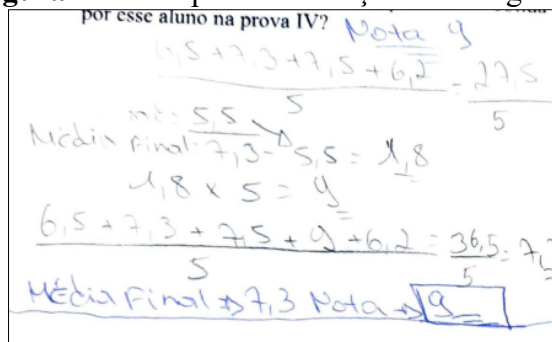 por esse aluno na prova IV? Nota 9
6,5 + 7,3 + 7,5 + 6,2 = 27,5
5 5
5,5
Média Final: 7,3 - 5,5 = 1,8
1,8 x 5 = 9
6,5 + 7,3 + 7,5 + 9 + 6,2 = 36,5 =
5 5
Média Final => 7,3 Nota => 9